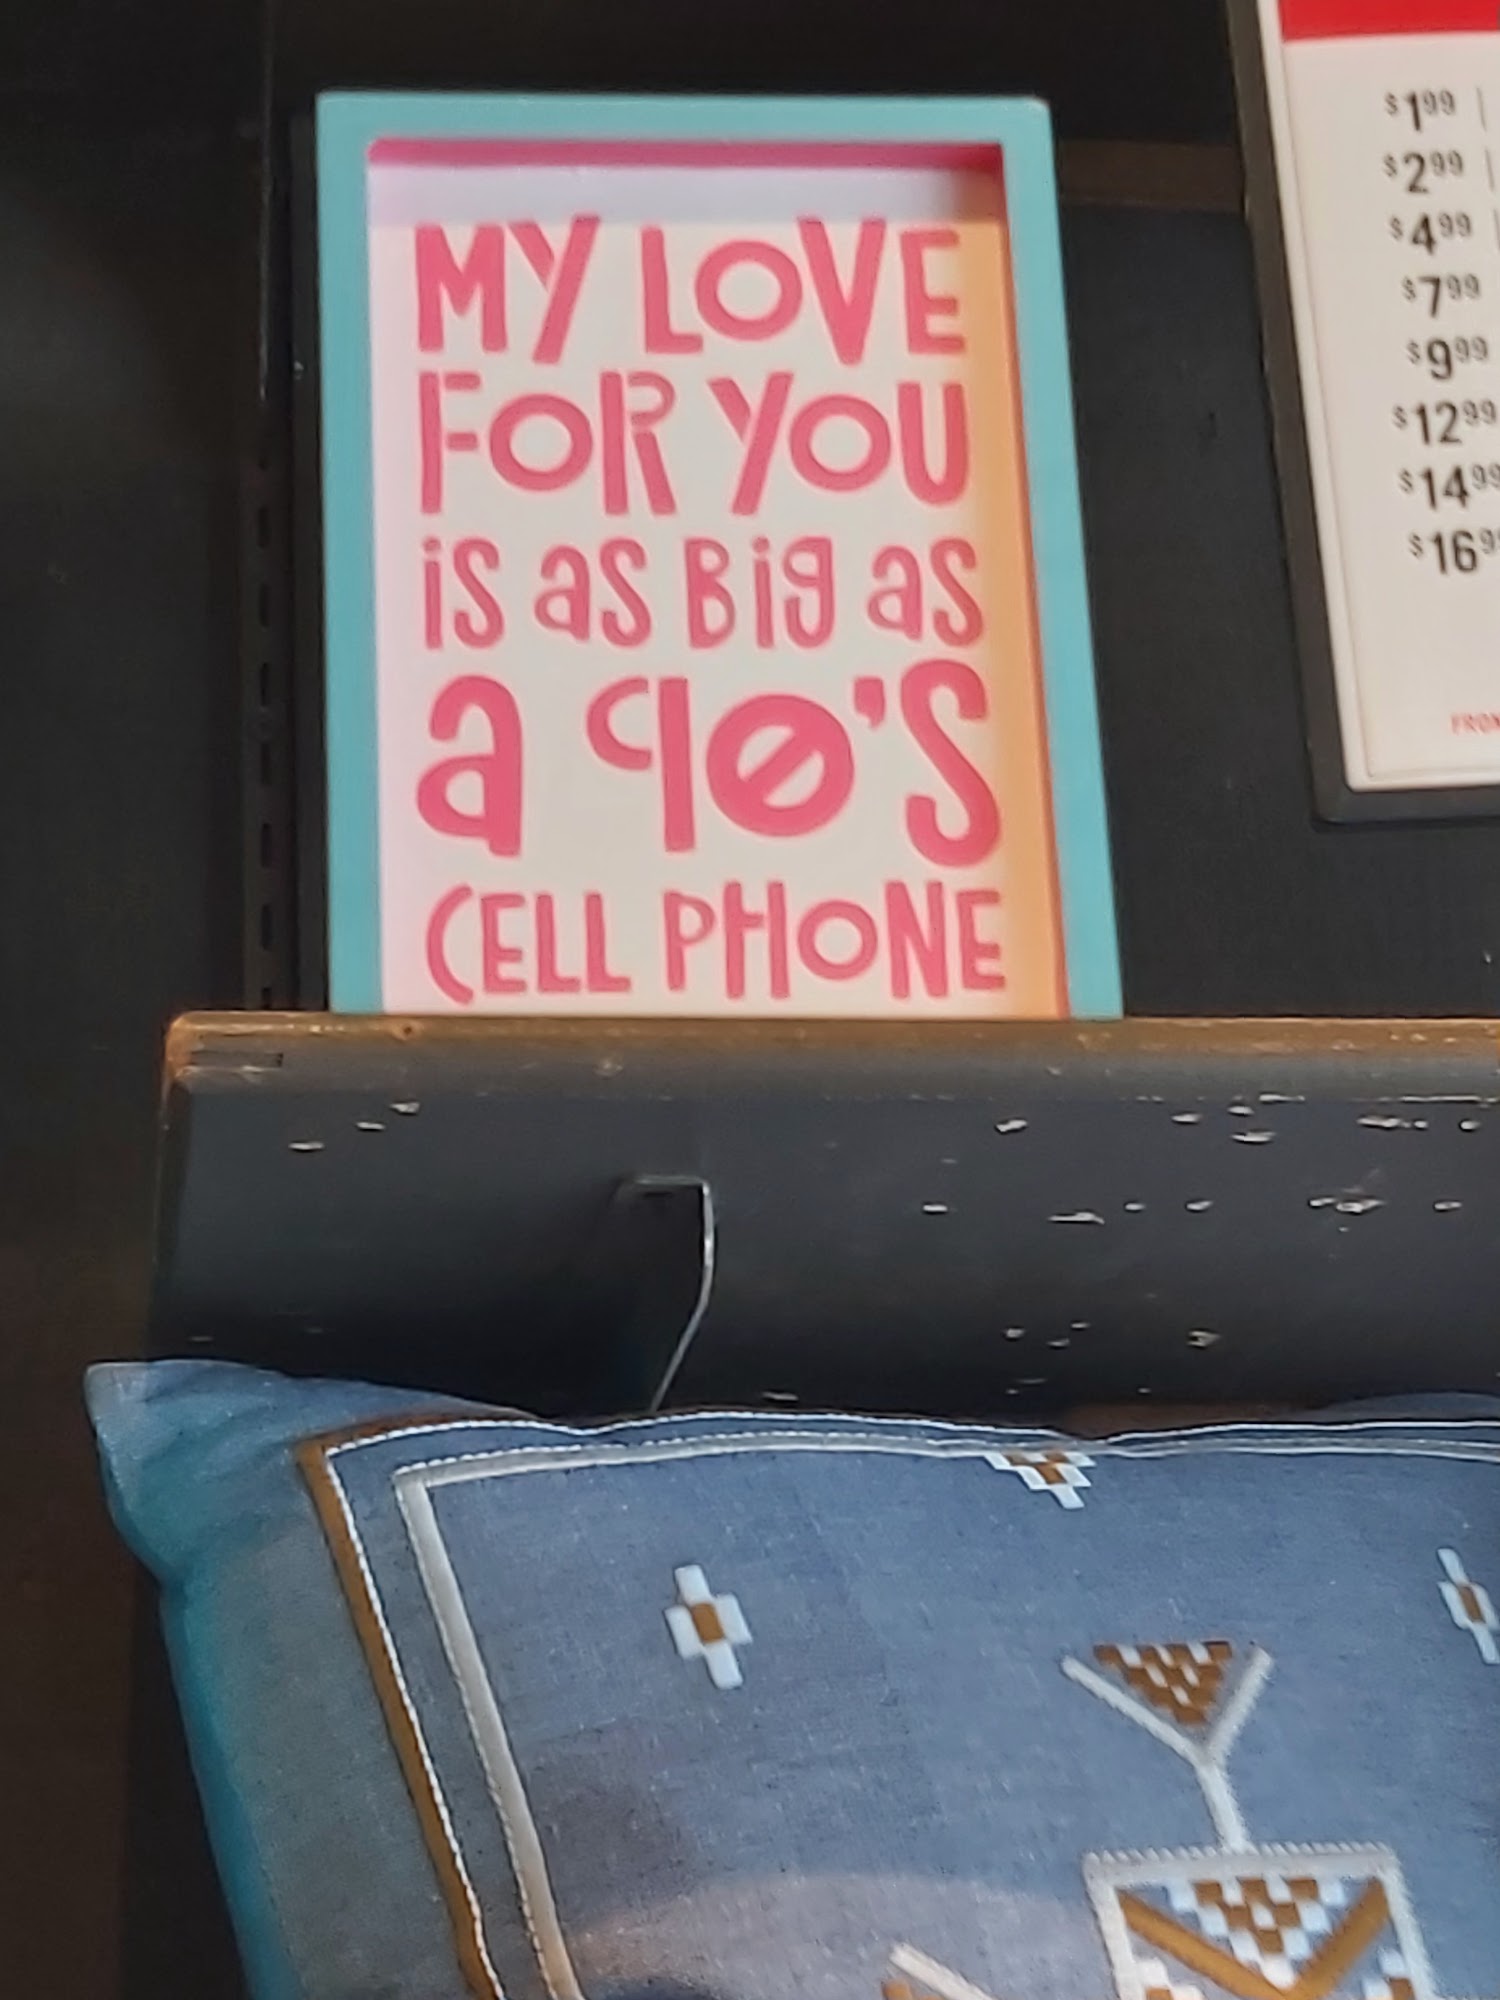 MY LOVE
FOR YOU
is as Big as
a 90's
CELL PHONE
$199
$299
$499
$799
$999
$1299
$1499